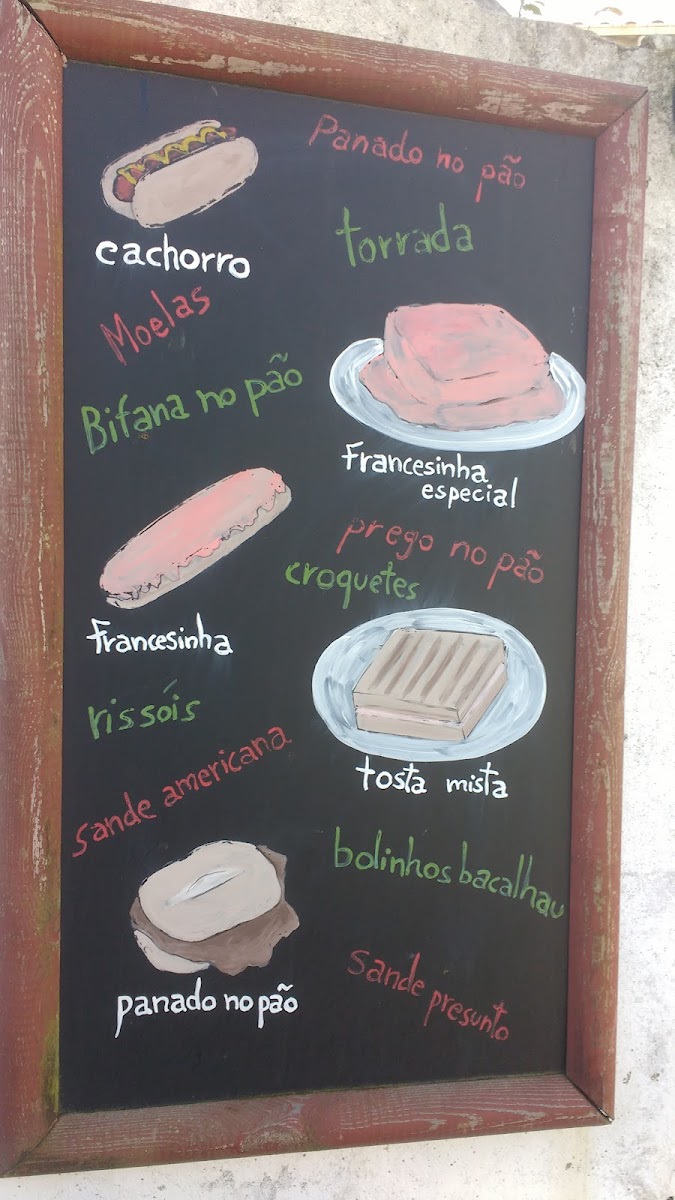 Panado no pão
torrada
cachorro
Moelas
Bifana no pão
Francesinha
especial
prego no pão
croquetes
Francesinha
rissóis
tosta mista
sande americana
bolinhos bacalhau
sande presunto
panado no pão